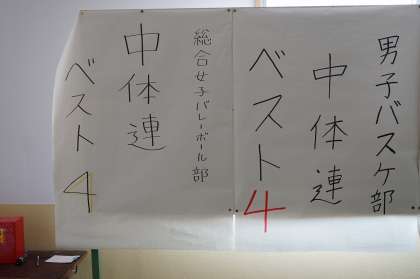 男子バスケ部
中体連
ベスト4
総合女子バレーボール部
中体連
ベスト4